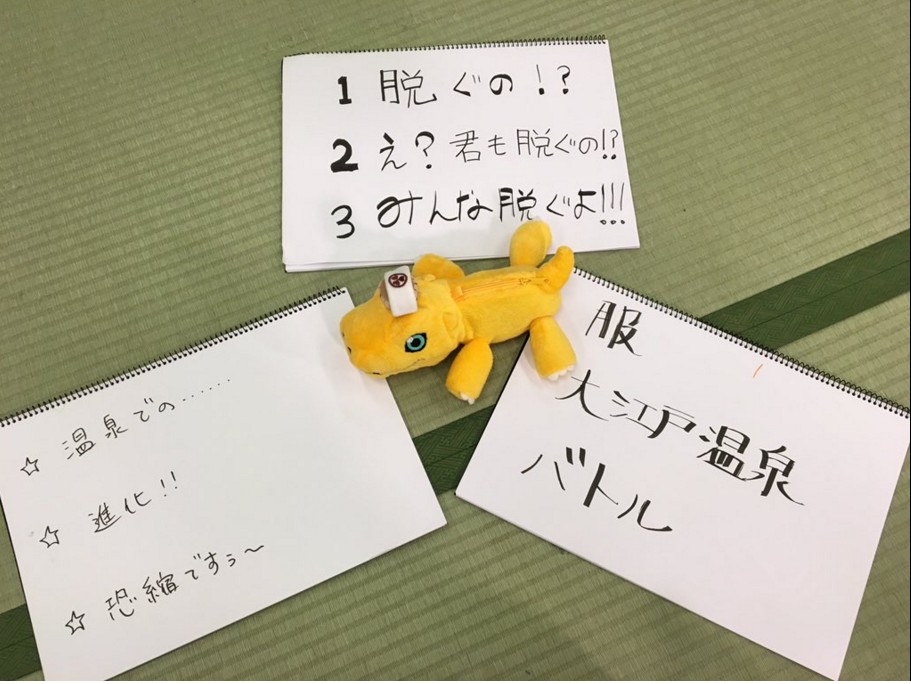 1 脱ぐの!?
2 え?君も脱ぐの!?
3 みんな脱ぐよ!!!
☆ 温泉での……
☆ 進化!!
☆ 恐縮ですぅ〜
服
大江戸温泉
バトル